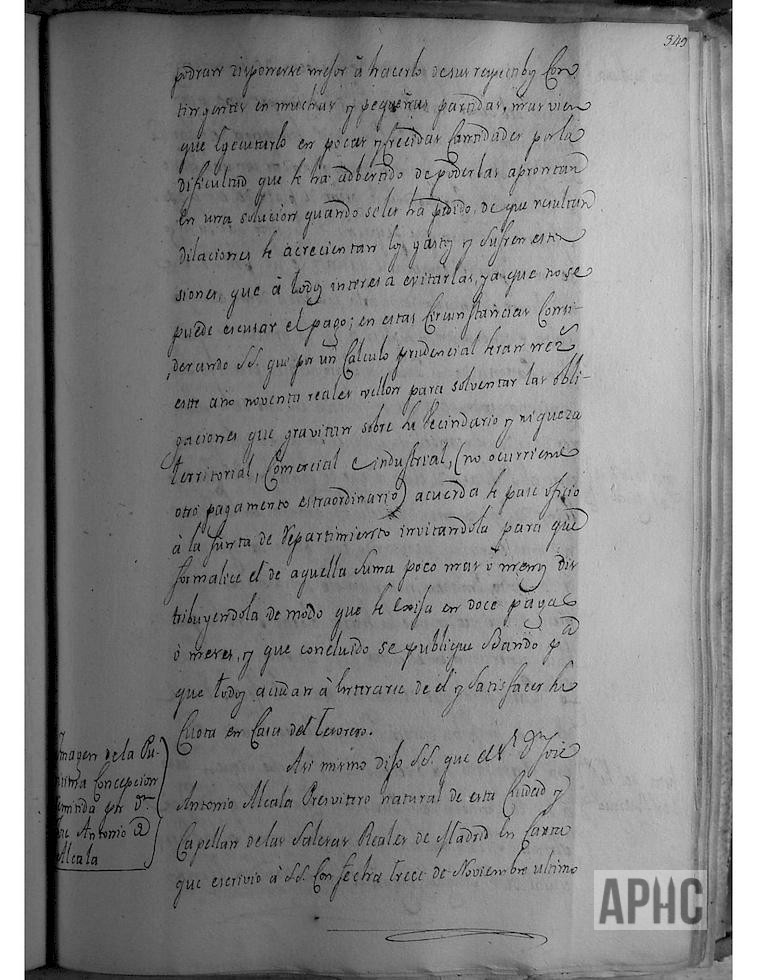 349
podran disponerse mejor à hacerlo de sus respectibos Con
tingentes en muchas y pequeñas partidas, mas vien
que egecutarlo en pocas y crecidas Cantidades por la
dificultad que se ha adbertido de poderlas aprontar
en una solucion quando seles ha pedido, de que resultan
dilaciones se acrecientan los gastos y sufren esten
siones, que à todos interesa evitarlas, ya que no se
puede escusar el pago; en estas Circunstancias Consi-
derando SS. que por un Calculo prudencial seran
este año noventa reales vellon para solventar las obli-
gaciones que gravitan sobre su Vecindario y riqueza
territorial, Comercial e industrial, (no ocurriendo
otro pagamento estraordinario) acuerda se pase oficio
à la Junta de Repartimiento invitandola para que
formalice el de aquella suma poco mas ò menos dis
tribuyendola de modo que se exija en doce pagas
ò meses, y que concluido se publique Bando pª
que todos acudan à enterarse de el y satisfacer su
Cuota en Casa del tesorero.
Imagen de la Pu-
risima Concepcion
remitida por Dn.
Jose Antonio de
Alcala
Asi mismo dijo SS. que el Sr. Dn. Jose
Antonio Alcala Presvitero natural de esta Ciudad y
Capellan de las Salesas Reales de Madrid en Carta
que escrivio à SS. Con fecha trece de Noviembre ultimo
APHC